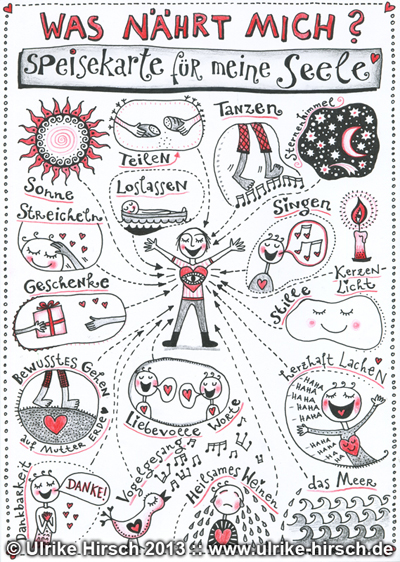 WAS NÄHRT MICH?
SPEISEKARTE FÜR MEINE SEELE
Sonne
Teilen
Tanzen
Sternenhimmel
Loslassen
Streicheln
Singen
Kerzen-
Licht
Geschenke
Stille
Bewusstes Gehen
auf Mutter Erde
Liebevolle Worte
Herzhaft Lachen
HAHA
HAHA
HAHA
HAHA
HAHA
HAHA
HAHA
HAHA
Dankbarkeit
DANKE!
Vogelgesang
Heilsames Weinen
das Meer
© Ulrike Hirsch 2013 :: www.ulrike-hirsch.de